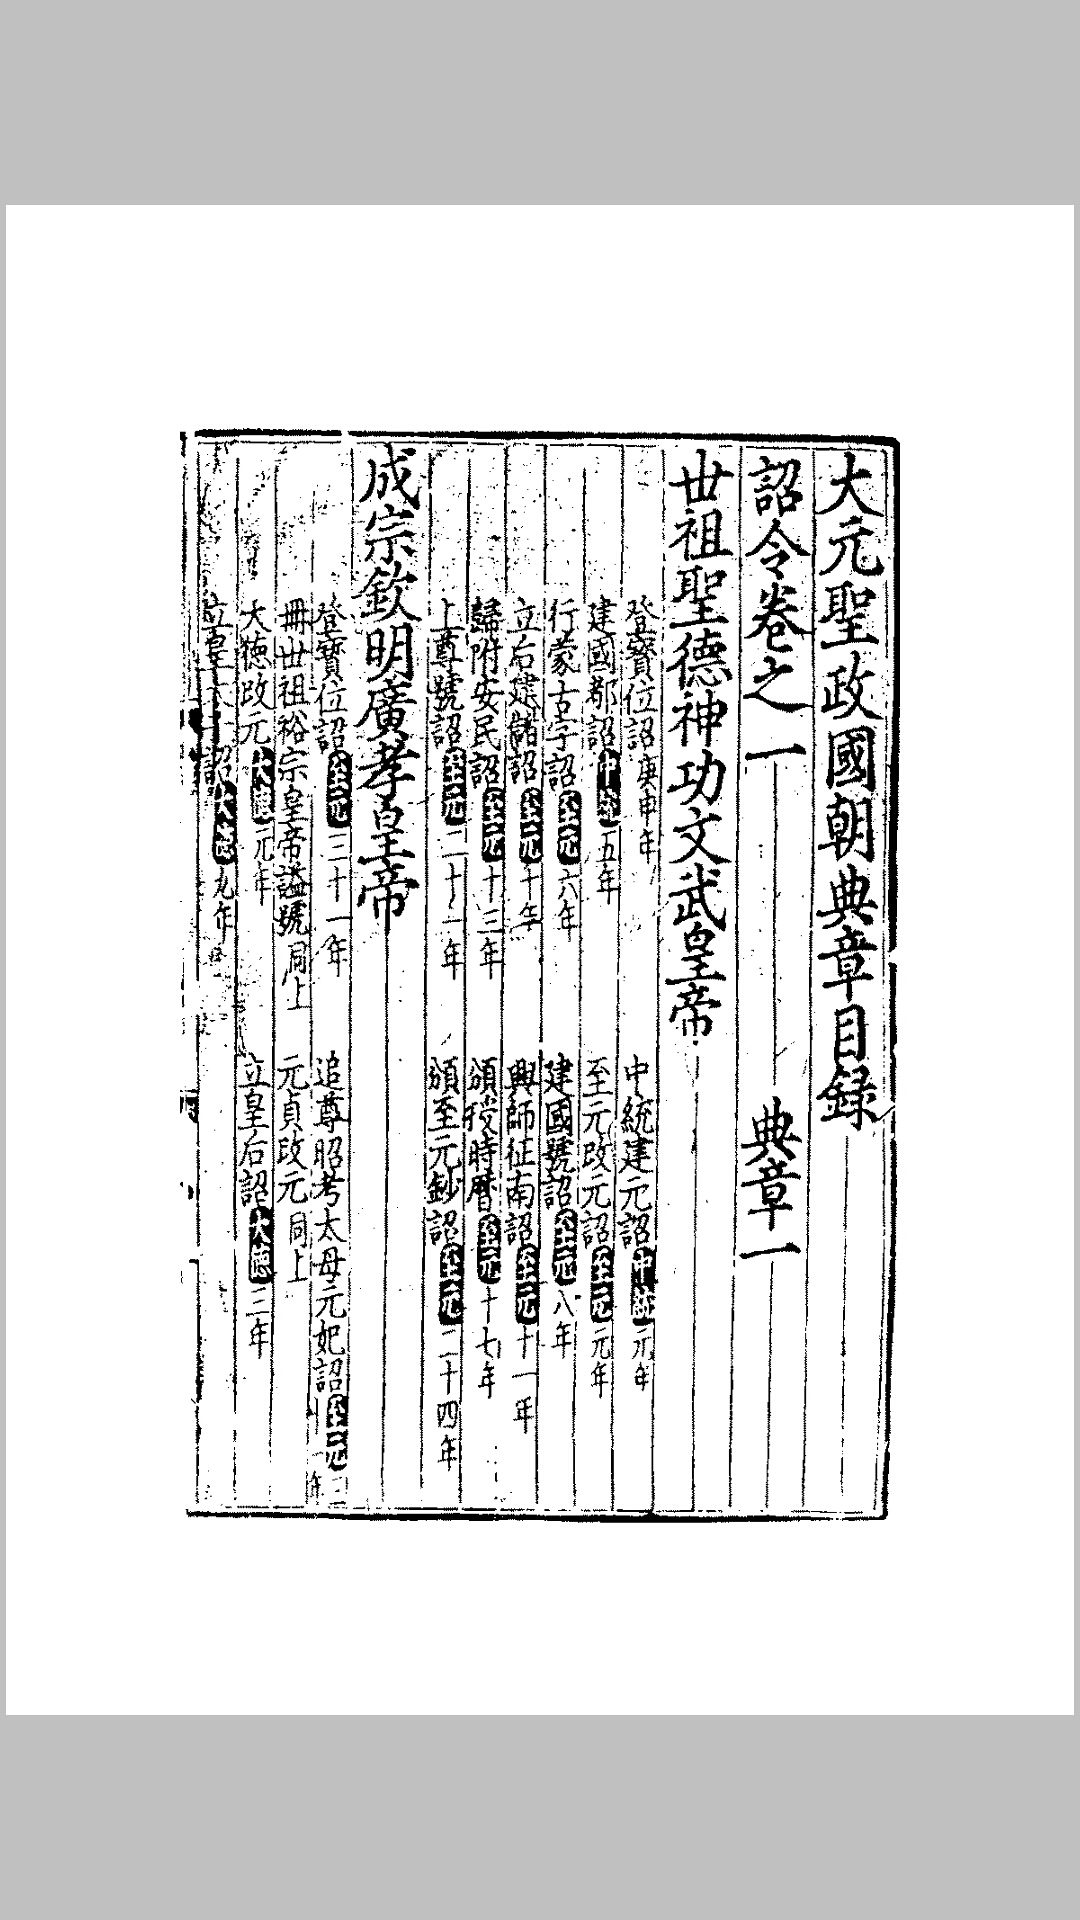 大元聖政國朝典章目録
詔令卷之一 典章一
世祖聖德神功文武皇帝
登寳位詔庚申年 中統建元詔中統元年
建國都詔中統五年 至元改元詔至元元年
行蒙古字詔至元六年 建國號詔至元八年
立后建儲詔至元十年 興師征南詔至元十一年
歸附安民詔至元十三年 頒授時曆至元十七年
上尊號詔至元二十一年 頒至元鈔詔至元二十四年
成宗欽明廣孝皇帝
登寳位詔至元三十一年 追尊昭考太母元妃詔至元三十一年
冊世祖裕宗皇帝謚號同上 元貞改元同上
大德改元大德元年 立皇后詔大德三年
立皇太子詔大德九年